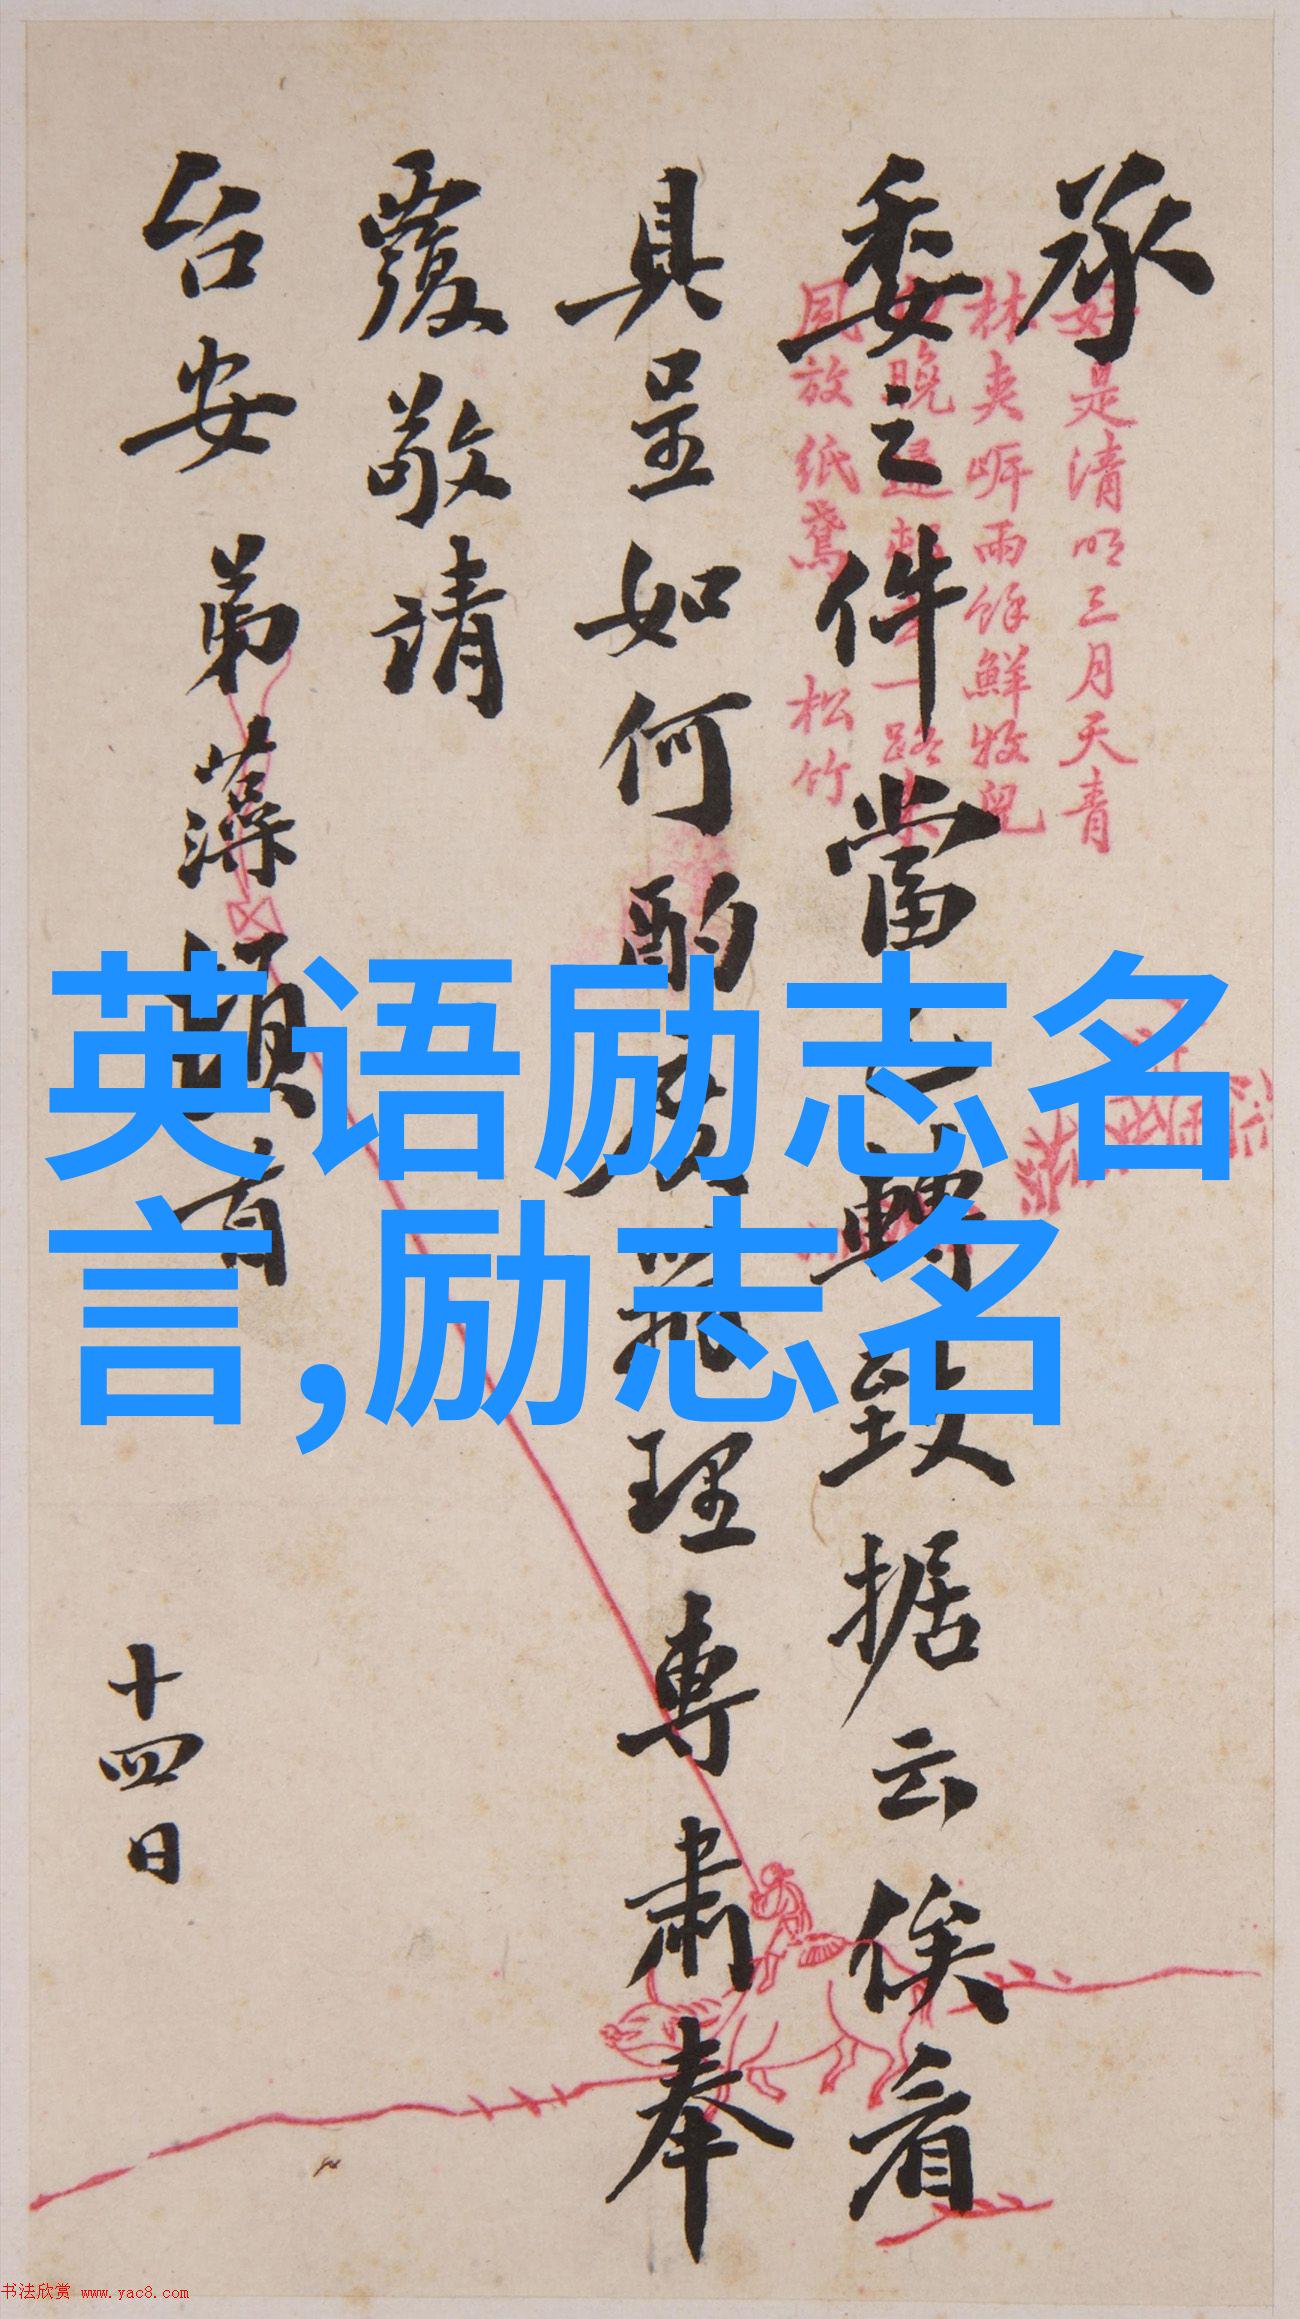 承
委之件當轉致据云俟看
具呈如何酌理專肅奉
覆敬請
台安 弟藻頓首
十四日
好是清明三月天青
林夾㟁雨餘鮮牧兒
晚一路
同放紙鳶 松竹
英语励志名
言,励志名
书法欣赏 www.yac8.com